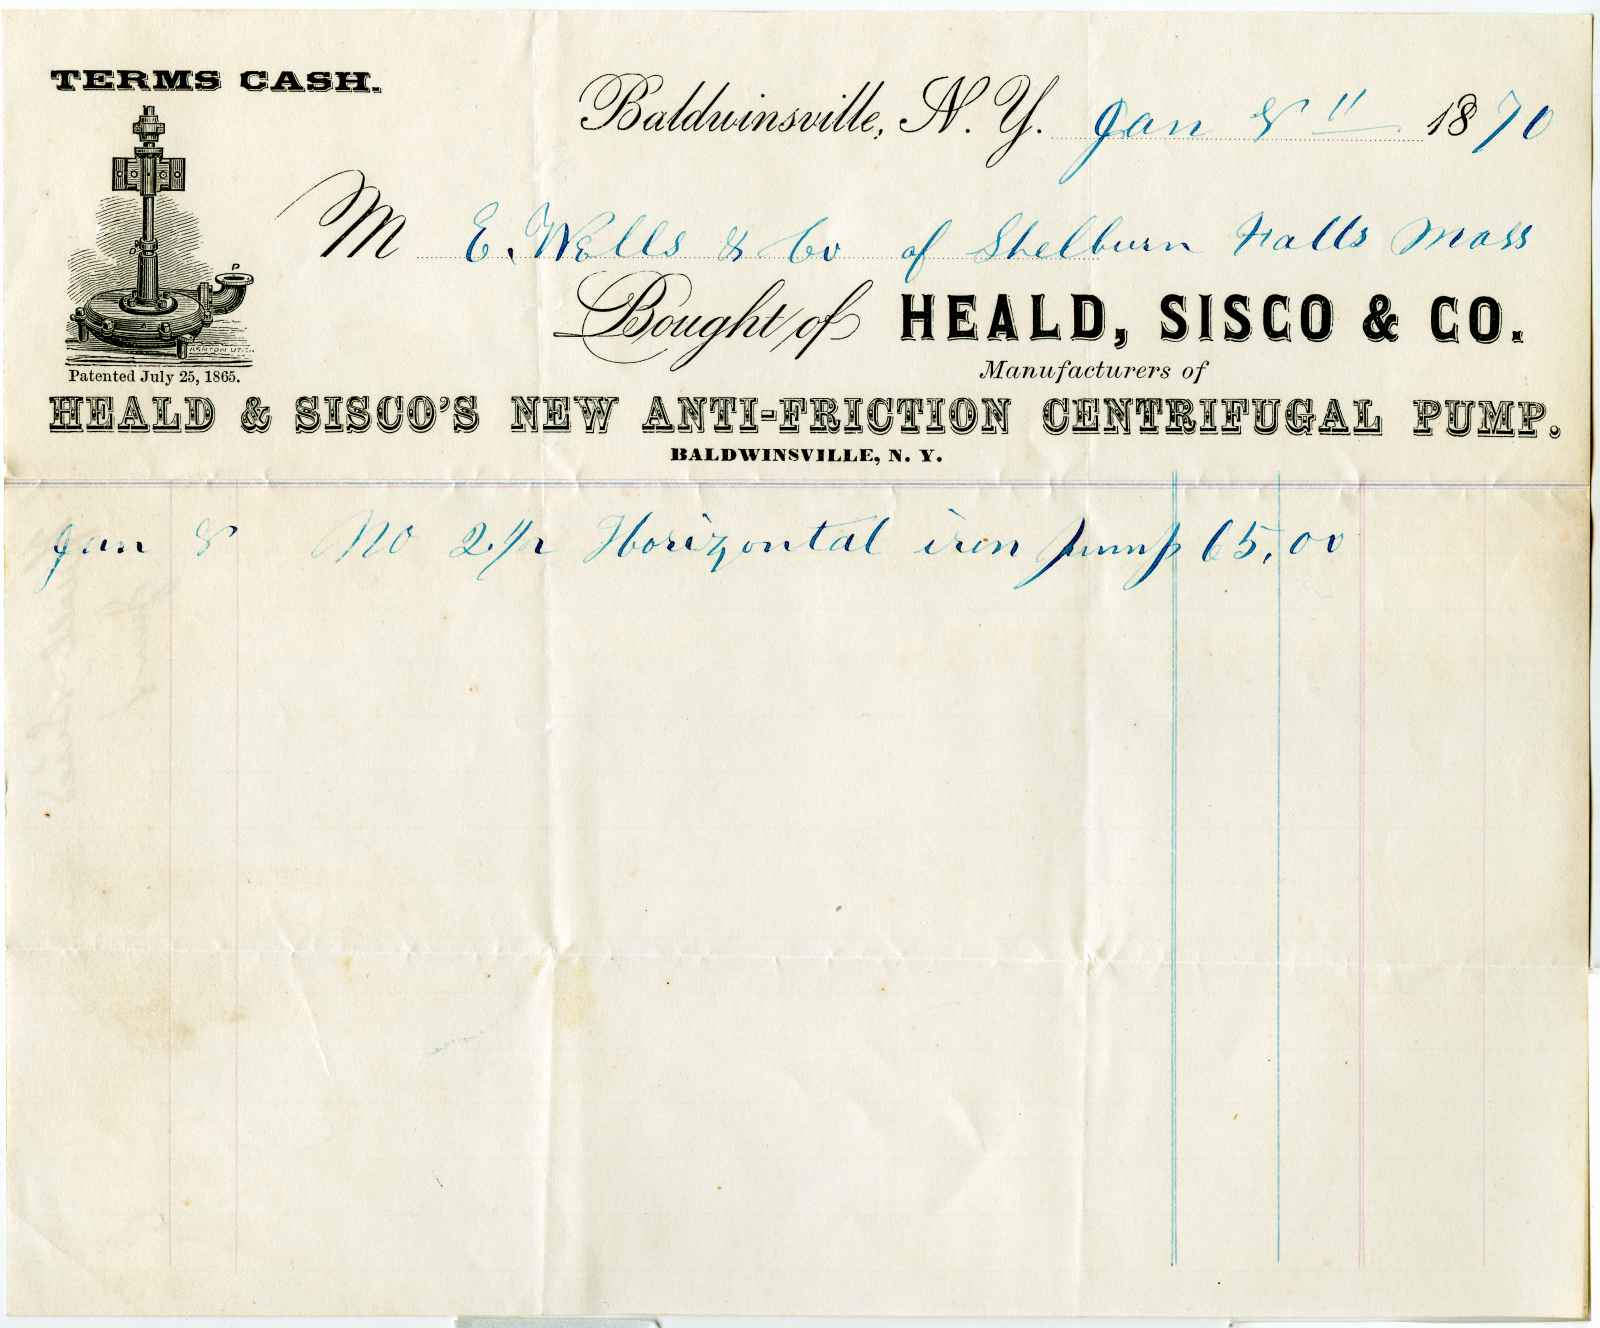 TERMS CASH.
Baldwinsville, N. Y. Jan 8" 1870
M E. Wells & Co of Shelburn Falls Mass
Bought of HEALD, SISCO & CO.
Manufacturers of
Patented July 25, 1865.
HEALD & SISCO'S NEW ANTI-FRICTION CENTRIFUGAL PUMP.
BALDWINSVILLE, N. Y.
Jan 8 No 2 1/2 Horizontal iron pump 65,00